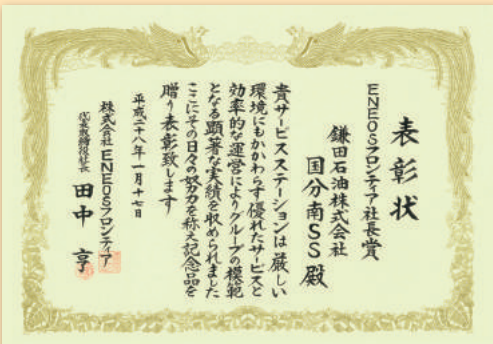 表彰状
ENEOSフロンティア社長賞
鎌田石油株式会社
国分南SS殿
貴サービスステーションは厳しい
環境にもかかわらず優れたサービスと
効率的な運営によりグループの模範
となる顕著な実績を収められました
ここにその日々の努力を称え記念品を
贈り表彰致します
平成二十八年一月十七日
株式会社ENEOSフロンティア
代表取締役社長 田中亨